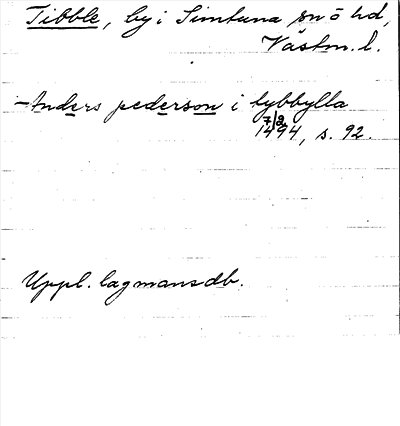 Tibble, by i Simtuna sn o hd,
Västm. l.
- Anders pederson i tybbylla
7/2
1494, s. 92.
Uppl. lagmansdb.